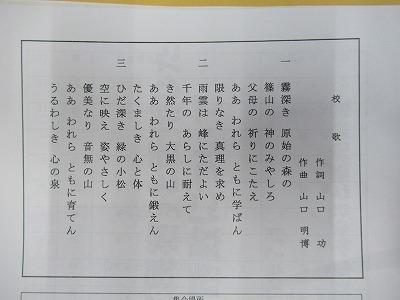 校歌
作詞 山口 功
作曲 山口 明博
一 霧深き 原始の森の
篠山の 神のみやしろ
父母の 祈りにこたえ
ああ われら ともに学ばん
限りなき 真理を求め
二 雨雲は 峰にただよい
千年の あらしに耐えて
き然たり 大黒の山
ああ われら ともに鍛えん
たくましき 心と体
三 ひだ深き 緑の小松
空に映え 姿やさしく
優美なり 音無の山
ああ われら ともに育てん
うるわしき 心の泉
集合場所